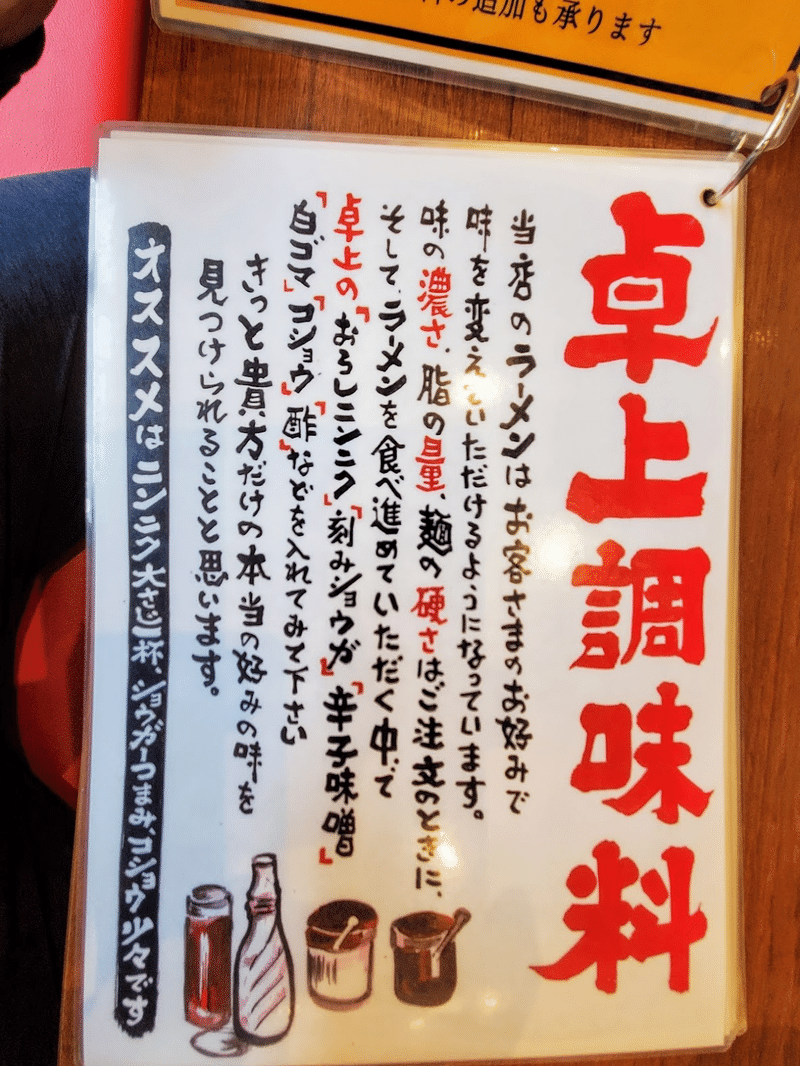 の追加も承ります
卓上調味料
当店のラーメンはお客さまのお好みで
味を変えていただけるようになっています。
味の濃さ、脂の量、麺の硬さはご注文のときに、
そして、ラーメンを食べ進めていただく中で
卓上の「おろしニンニク」「刻みショウガ」「辛子味噌」
「白ゴマ」「コショウ」「酢」などを入れてみて下さい
きっと貴方だけの本当の好みの味を
見つけられることと思います。
オススメはニンニク大さじ一杯、ショウガ一つまみ、コショウ少々です